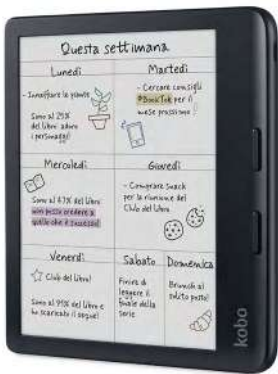 Questa settimana
Lunedì
- Innaffiare le piante
Sono al 25%
del libro: adoro
i personaggi!
Martedì
- Cercare consigli
#BookTok per il
mese prossimo!
Mercoledì
Sono al 67% del libro:
non posso credere a
quello che è successo!
Giovedì
- Comprare snack
per la riunione del
Club del libro
Venerdì
Club del libro!
Sono al 95% del libro e
ho scaricato il sequel!
Sabato
Finire di
leggere il
finale della
serie
Domenica
Brunch al
solito posto!
kobo